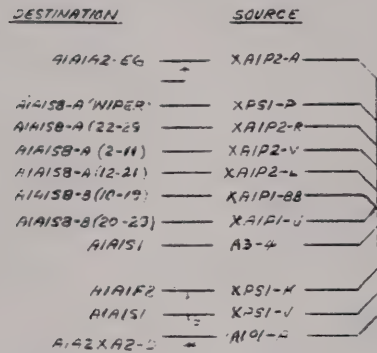 DESTINATION SOURCE
A1A1A2-E6 XA1P2-A
A1A1S8-A (WIPER) XPS1-P
A1A1S8-A (22-29 XA1P2-R
A1A1S8-A (2-11) XA1P2-V
A1A1S8-A (12-21) XA1P2-L
A1A1S8-B (10-19) XA1P1-BB
A1A1S8-B (20-23) XA1P1-J
A1A1S1 A3-4
A1A1F2 XPS1-K
A1A1S1 XPS1-J
A1A2XA2-